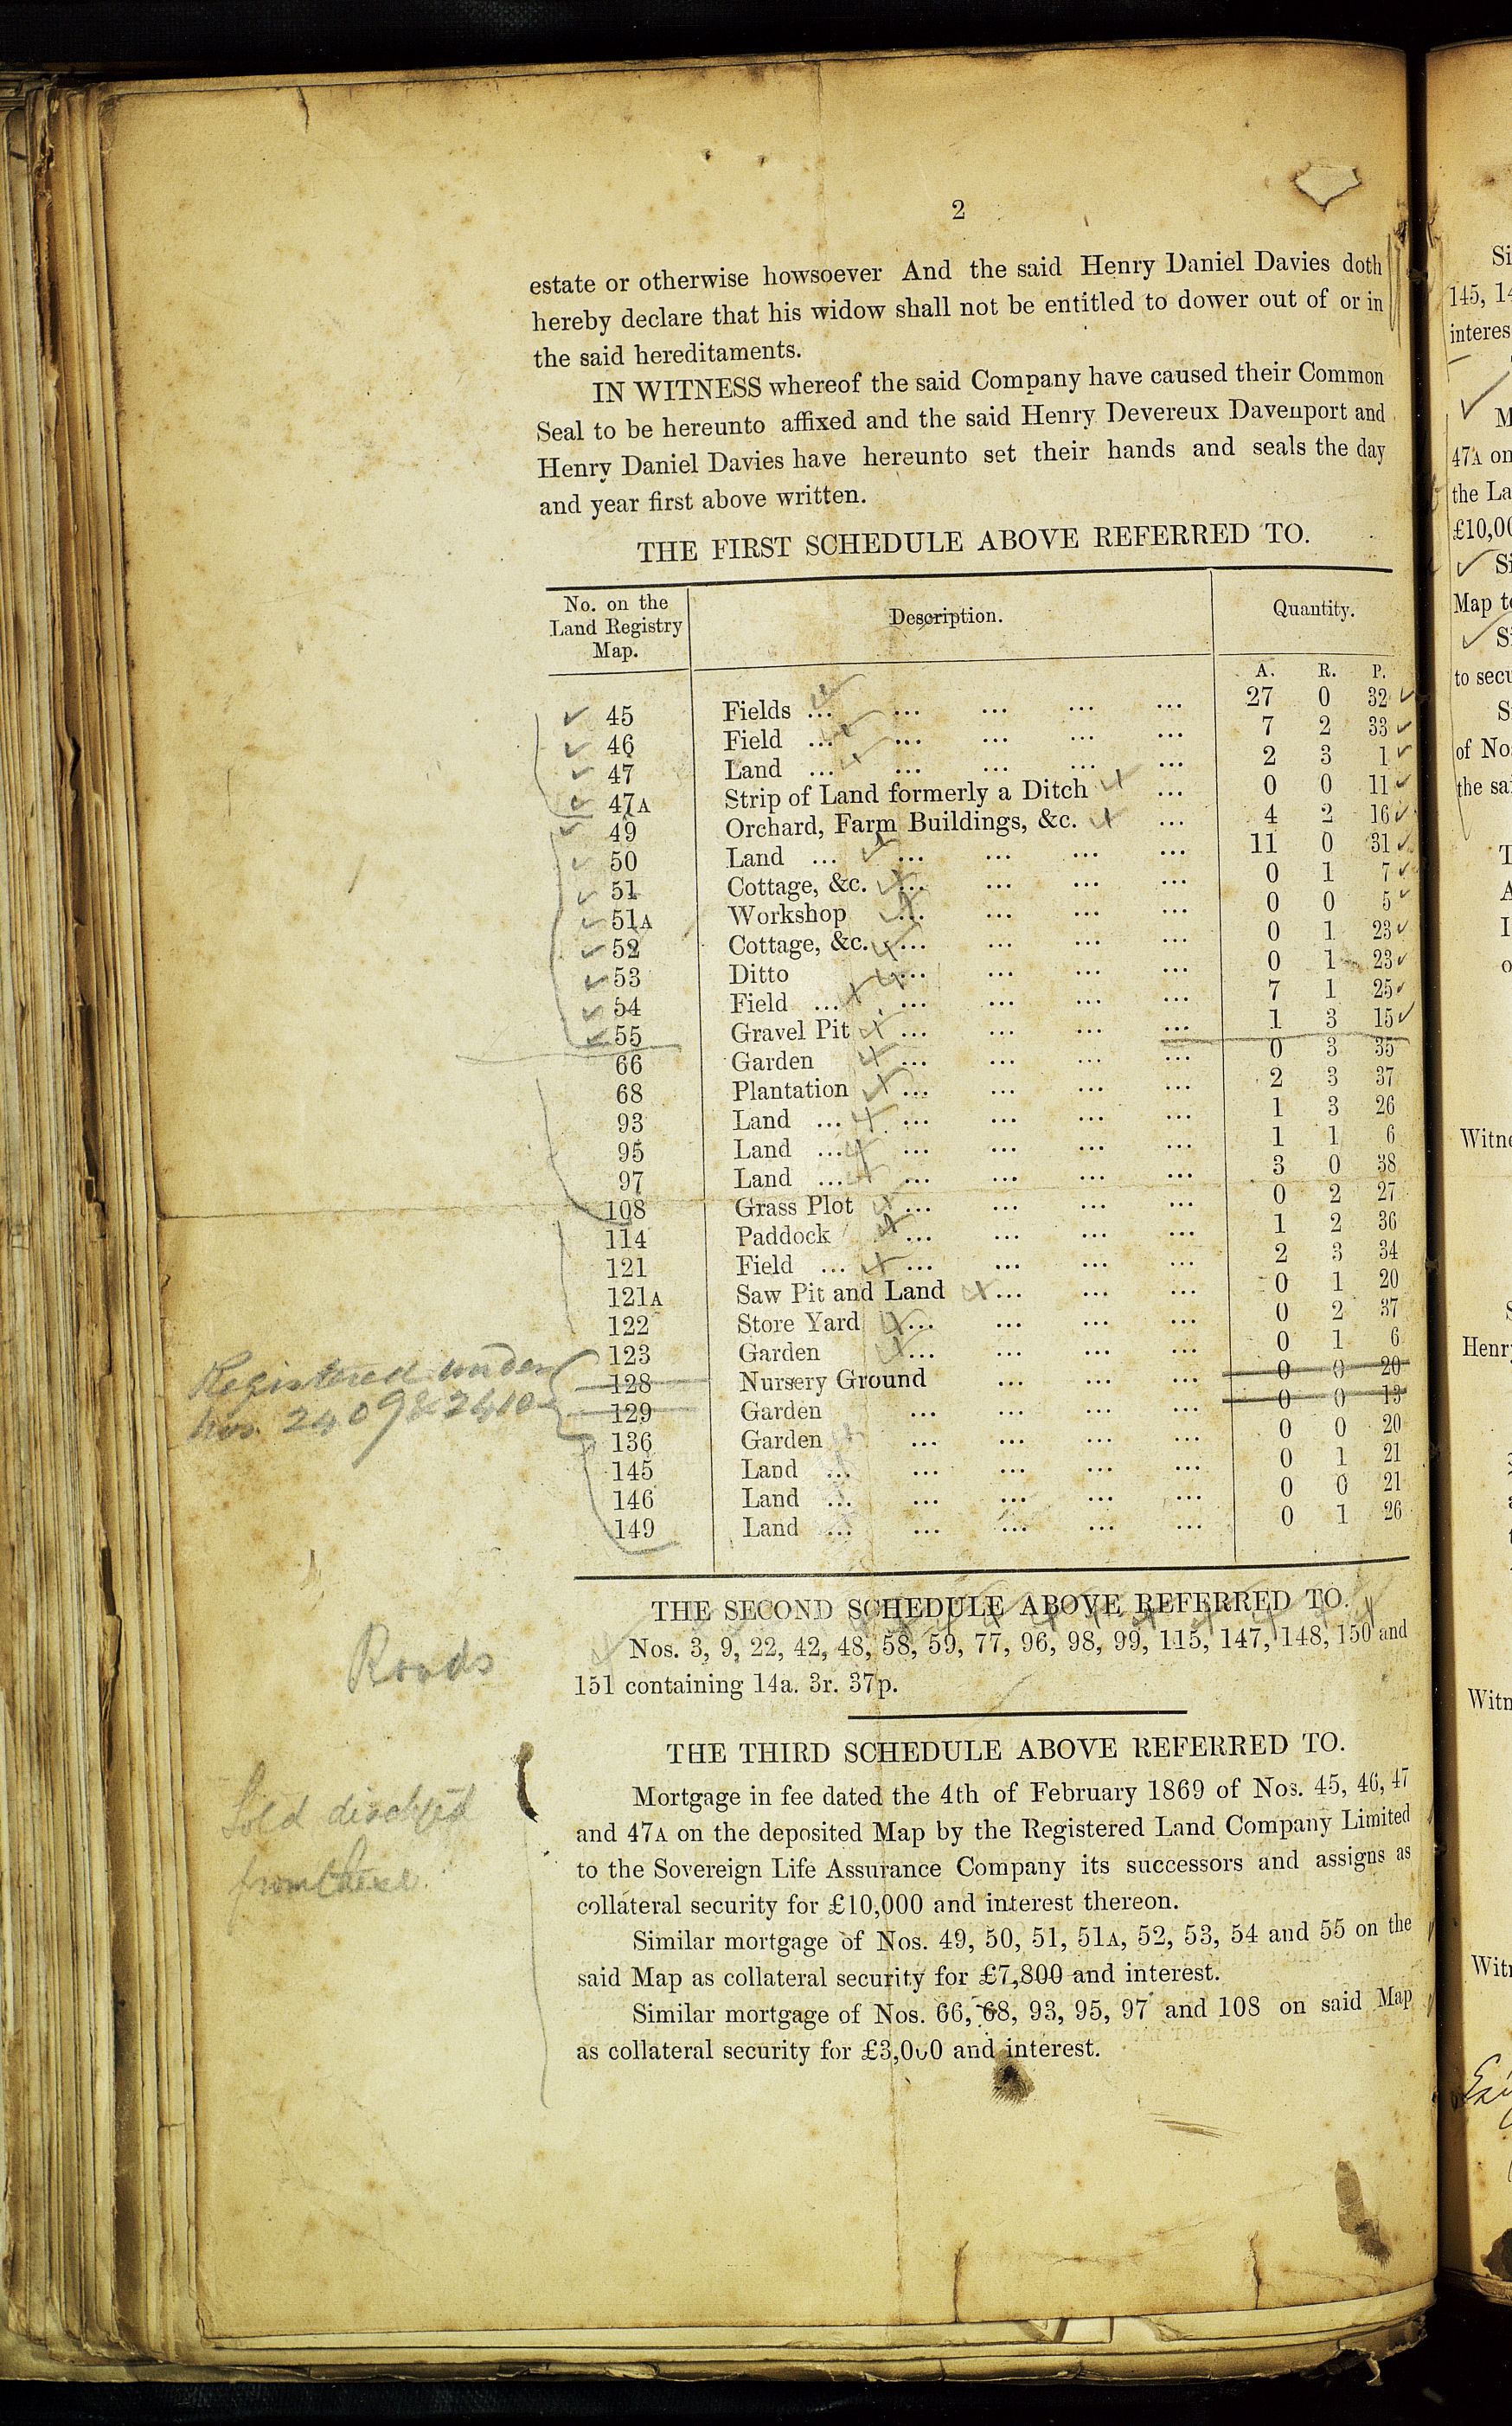 2
estate or otherwise howsoever And the said Henry Daniel Davies doth
hereby declare that his widow shall not be entitled to dower out of or in
the said hereditaments.
IN WITNESS whereof the said Company have caused their Common
Seal to be hereunto affixed and the said Henry Devereux Davenport and
Henry Daniel Davies have hereunto set their hands and seals the day
and year first above written.
THE FIRST SCHEDULE ABOVE REFERRED TO.
No. on the Land Registry Map. Description. Quantity.
A. R. P.
45 Fields ... ... ... ... ... 27 0 32
46 Field ... ... ... ... ... 7 2 33
47 Land ... ... ... ... ... 2 3 1
47A Strip of Land formerly a Ditch ... 0 0 11
49 Orchard, Farm Buildings, &c. ... 4 2 16
50 Land ... ... ... ... ... 11 0 31
51 Cottage, &c. ... ... ... ... 0 1 7
51A Workshop ... ... ... ... 0 0 5
52 Cottage, &c. ... ... ... ... 0 1 23
53 Ditto ... ... ... ... 0 1 23
54 Field ... ... ... ... ... 7 1 25
55 Gravel Pit ... ... ... ... 1 3 15
66 Garden ... ... ... ... 0 3 35
68 Plantation ... ... ... ... 2 3 37
93 Land ... ... ... ... ... 1 3 26
95 Land ... ... ... ... ... 1 1 6
97 Land ... ... ... ... ... 3 0 38
108 Grass Plot ... ... ... ... 0 2 27
114 Paddock ... ... ... ... 1 2 36
121 Field ... ... ... ... ... 2 3 34
121A Saw Pit and Land ... ... ... 0 1 20
122 Store Yard ... ... ... ... 0 2 37
123 Garden ... ... ... ... 0 1 6
128 Nursery Ground ... ... ... 0 0 20
129 Garden ... ... ... ... 0 0 13
136 Garden ... ... ... ... 0 0 20
145 Land ... ... ... ... ... 0 1 21
146 Land ... ... ... ... ... 0 0 21
149 Land ... ... ... ... ... 0 1 26
Registered under
Nos. 2409 & 2410
THE SECOND SCHEDULE ABOVE REFERRED TO.
Nos. 3, 9, 22, 42, 48, 58, 59, 77, 96, 98, 99, 115, 147, 148, 150 and
151 containing 14a. 3r. 37p.
Roads
THE THIRD SCHEDULE ABOVE REFERRED TO.
Mortgage in fee dated the 4th of February 1869 of Nos. 45, 46, 47
and 47A on the deposited Map by the Registered Land Company Limited
to the Sovereign Life Assurance Company its successors and assigns as
collateral security for £10,000 and interest thereon.
Similar mortgage of Nos. 49, 50, 51, 51A, 52, 53, 54 and 55 on the
said Map as collateral security for £7,800 and interest.
Similar mortgage of Nos. 66, 68, 93, 95, 97 and 108 on said Map
as collateral security for £3,000 and interest.
Sold
from these
145, 14
interes
47A on
the La
£10,00
Map to
to secu
of Nos
the sai
Witne
Henr
Witn
Witn